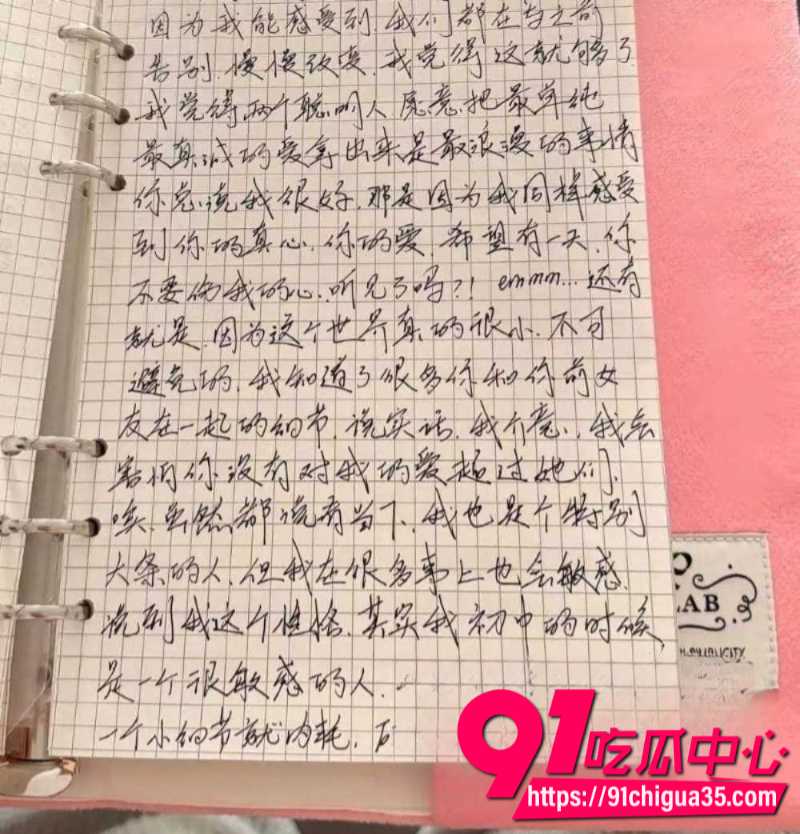 因为我能感受到,我们都在与之前
告别,慢慢改变,我觉得这就够了
我觉得,两个聪明人愿意把最单纯
最真诚的爱拿出来是最浪漫的事情
你总说我很好,那是因为我同样感受
到你的真心,你的爱,希望有一天,你
不要伤我的心,听见了吗?! emmm...还有
就是,因为这个世界真的很小,不可
避免的,我知道了很多你和你前女
友在一起的细节,说实话,我介意,我会
害怕你没有对我的爱超过她们,
唉,虽然都说看当下,我也是个特别
大条的人,但我在很多事上也会敏感,
说到我这个性格,其实我初中的时候,
是一个很敏感的人.
一个小细节就内耗,
LAB
91吃瓜中心
https://91chigua35.com